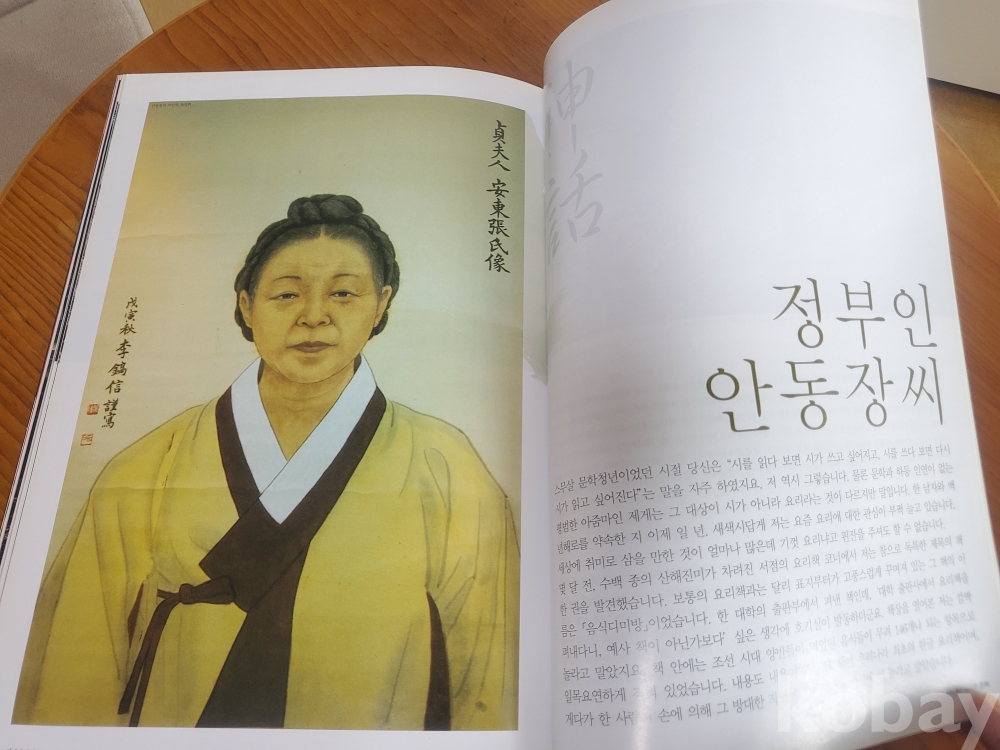 貞夫人 安東張氏像
戊寅秋 李鎬信 謹寫
神話
정부인
안동장씨
스무살 문학청년이었던 시절 당신은 “시를 읽다 보면 시가 쓰고 싶어지고, 시를 쓰다 보면 다시
시가 읽고 싶어진다”는 말을 자주 하였지요. 저 역시 그렇습니다. 물론 문학과 하등 인연이 없는
평범한 아줌마인 제게는 그 대상이 시가 아니라 요리라는 것이 다르지만 말입니다. 한 남자와 백
년해로를 약속한 지 이제 일 년, 새색시답게 저는 요즘 요리에 대한 관심이 부쩍 늘고 있습니다.
세상에 취미로 삼을 만한 것이 얼마나 많은데 기껏 요리냐고 핀잔을 주셔도 할 수 없습니다.
몇 달 전, 수백 종의 산해진미가 차려진 서점의 요리책 코너에서 저는 참으로 독특한 제목의 책
한 권을 발견했습니다. 보통의 요리책과는 달리 표지부터가 고풍스럽게 꾸며져 있는 그 책의 이
름은 「음식디미방」이었습니다. 한 대학의 출판부에서 펴낸 책인데, 대학 출판사에서 요리책을
펴내다니, 예사 책이 아닌가보다 싶은 생각에 호기심이 발동하더군요. 책장을 열어본 저는 깜짝
놀라고 말았지요. 책 안에는 조선 시대 양반들이 해먹던 음식들이 무려 146개나 되는 항목으로
일목요연하게 있었습니다. 내용도
게다가 한 손에 의해 그 방대한
kobay